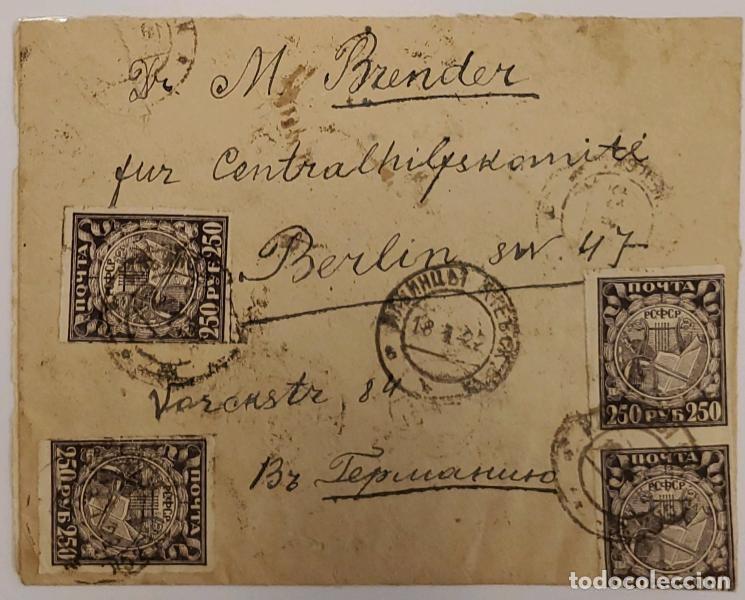 Dr M. Brender
fur Centralhilfskomité
Berlin sw. 47
Yorckstr, 84
Въ Германию
ПОЧТА
РСФСР
250 РУБ 250
ПОЧТА
РСФСР
250 РУБ 250
ПОЧТА
РСФСР
250 РУБ 250
ПОЧТА
РСФСР
КІЕВСК
18
22
todocoleccion
todocoleccion.net